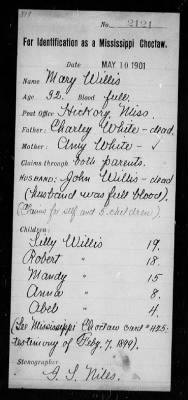 No. 2121
For Identification as a Mississippi Choctaw.
DATE MAY 10 1901
Name Mary Willis
Age 32. Blood full.
Post Office Hickory, Miss.
Father: Charley White - dead.
Mother: Amy White - ✓
Claims through both parents.
HUSBAND: John Willis - dead
(husband was full blood).
(Claims for self and 5 children)
Children:
Lilly Willis 19.
Robert " 18.
Mandy " 15
Anna " 8.
Abel " 4.
(See Mississippi Choctaw card #425:
testimony of Feby. 7, 1899).
Stenographer
G. S. Niles.